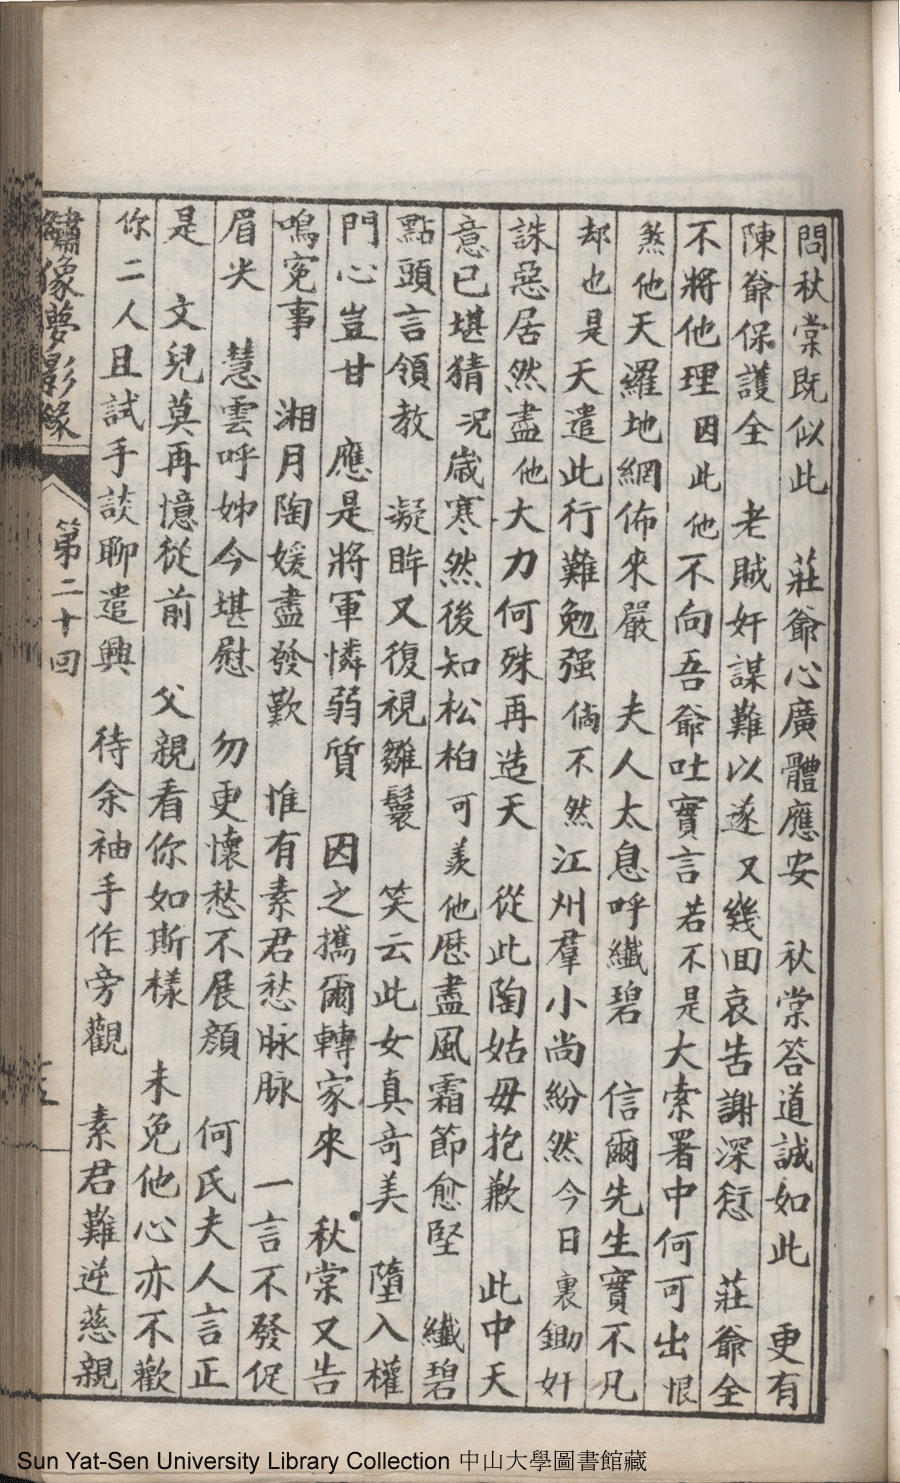 問秋棠既似此　莊爺心廣體應安　秋棠答道誠如此　更有
陳爺保護全　老賊奸謀難以遂　又幾回哀告謝深愆　莊爺全
不將他理　因此他不向吾爺吐實言　若不是大索署中何可出　恨
煞他天羅地網佈來嚴　夫人太息呼纖碧　信爾先生實不凡
却也是天遣此行難勉强　倘不然江州羣小尚紛然　今日裏鋤奸
誅惡居然盡　他大力何殊再造天　從此陶姑毋抱歉　此中天
意已堪猜　況歲寒然後知松柏　可羨他歷盡風霜節愈堅　纖碧
點頭言領教　凝眸又復視雛鬟　笑云此女真奇美　墮入權
門心豈甘　應是將軍憐弱質　因之攜爾轉家來　秋棠又告
鳴寃事　湘月陶媛盡發歎　惟有素君愁脉脉　一言不發促
眉尖　慧雲呼姊今堪慰　勿更懷愁不展顏　何氏夫人言正
是　文兒莫再憶從前　父親看你如斯樣　未免他心亦不歡
你二人且試手談聊遣興　待余袖手作旁觀　素君難逆慈親
繡像夢影緣
第二十回